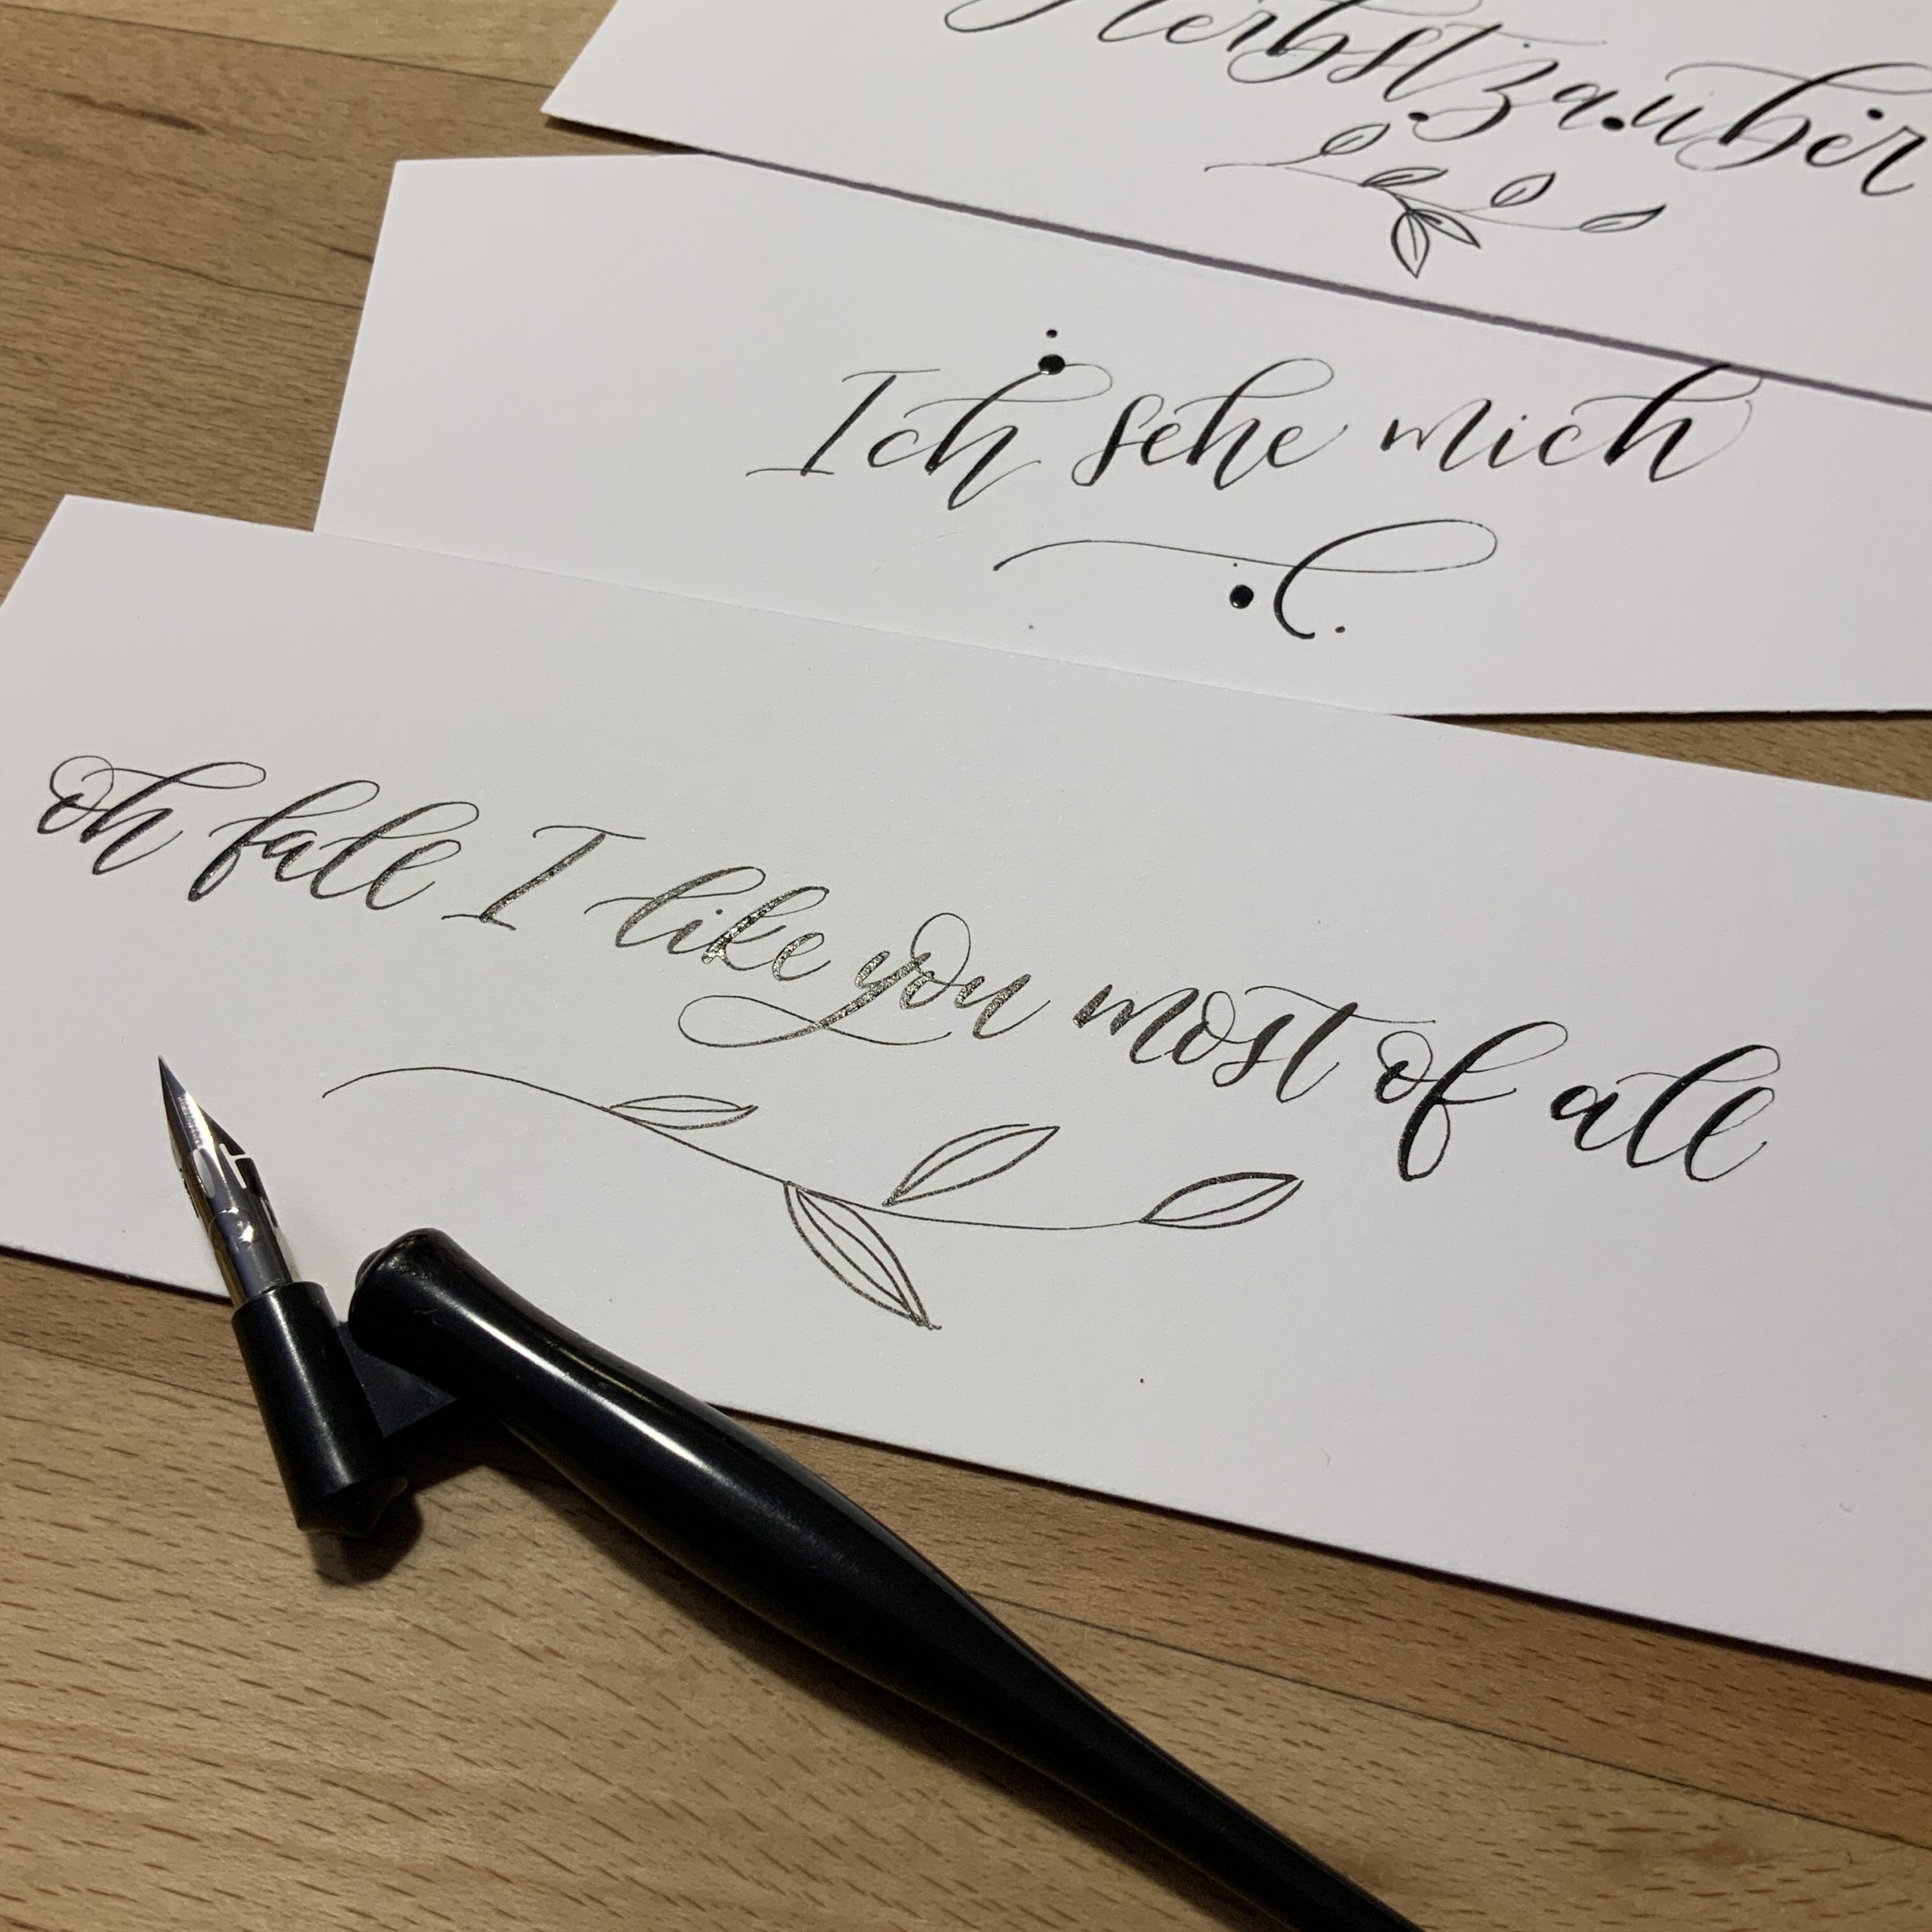 Herbstzauber
Ich sehe mich
oh fall I like you most of all